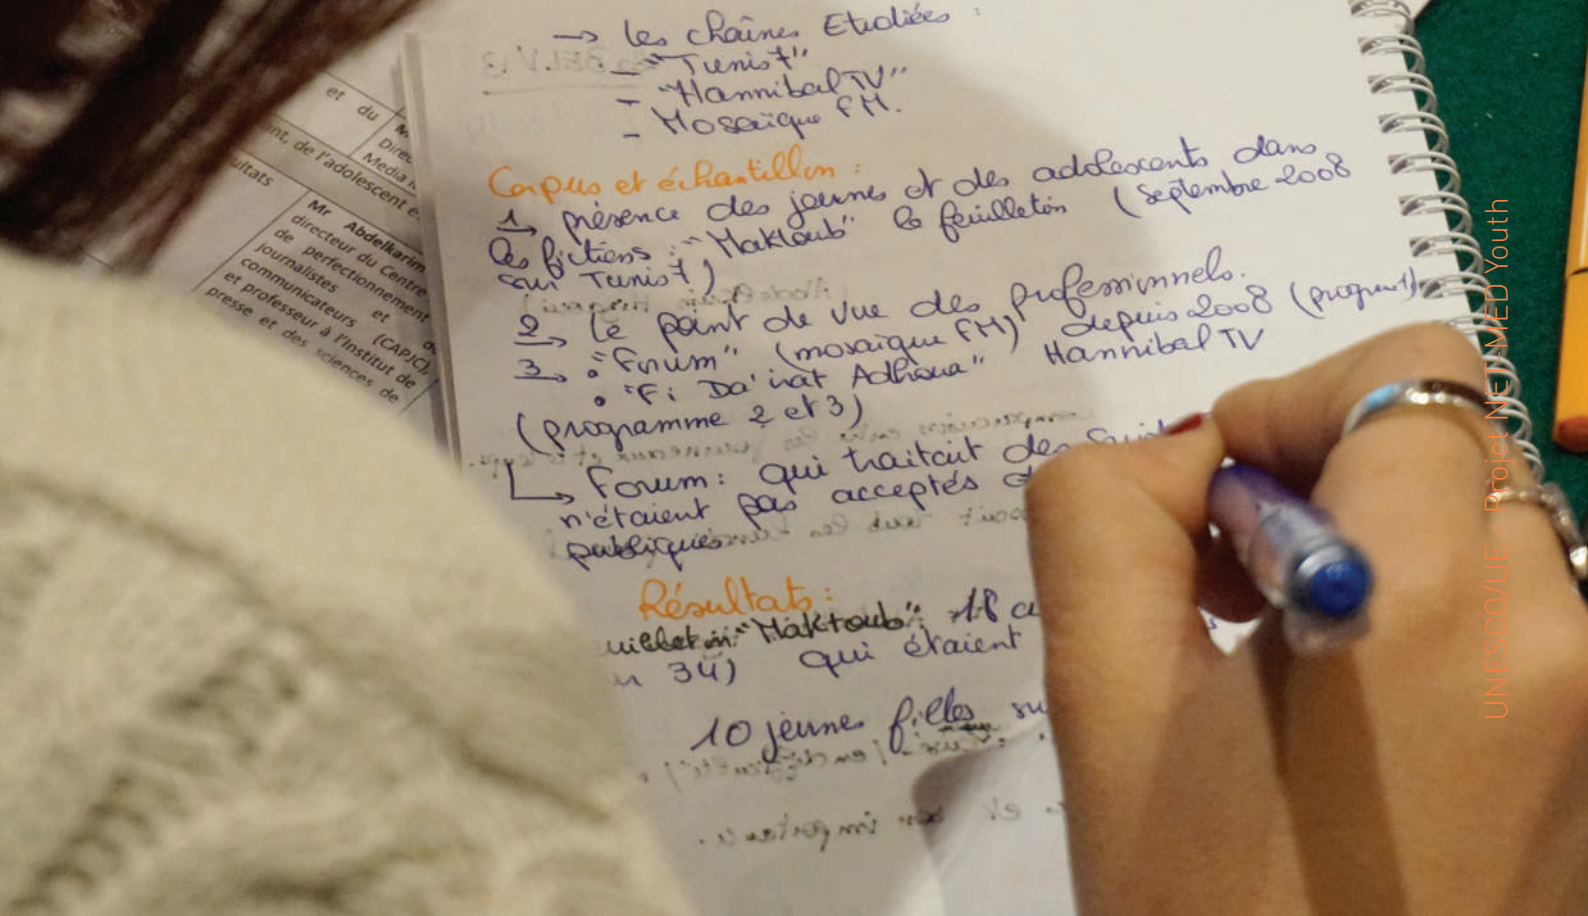 → Les chaînes Etudiées :
- "Tunis 7"
- "Hannibal TV"
- Mosaïque FM.
Corpus et échantillon :
1→ présence des jeunes et des adolescents dans
les fictions : "Maktoub" le feuilleton (Septembre 2008
sur Tunis 7)
2→ Le point de vue des professionnels.
3→ • "Forum" (mosaïque FM) depuis 2008
• "Fi Da'irat Adhoua" Hannibal TV
(programme 2 et 3)
↳ Forum : qui traitait des
n'étaient pas acceptés
publiques
Résultats :
"Maktoub" : 18
34) qui étaient
10 jeunes filles
et du
Media
ant, de l'adolescent e
ultats
Mr Abdelkarim
directeur du Centre
de perfectionnement
journalistes et
communicateurs (CAPJC),
et professeur à l'Institut de
presse et des sciences de
UNESCO/UE Projet NET-MED Youth